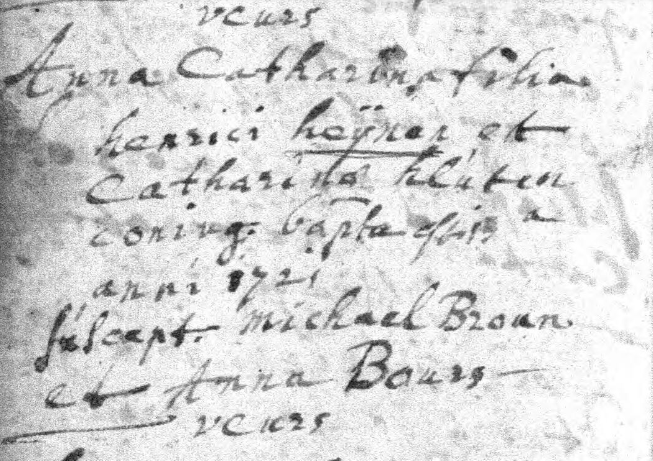 veurs
Anna Catharina filia
henrici heÿnen et
Catharinæ klúten
coniug. bapta est 13 a
anni 1721
súscept. michael Broun
et Anna Bours
veurs